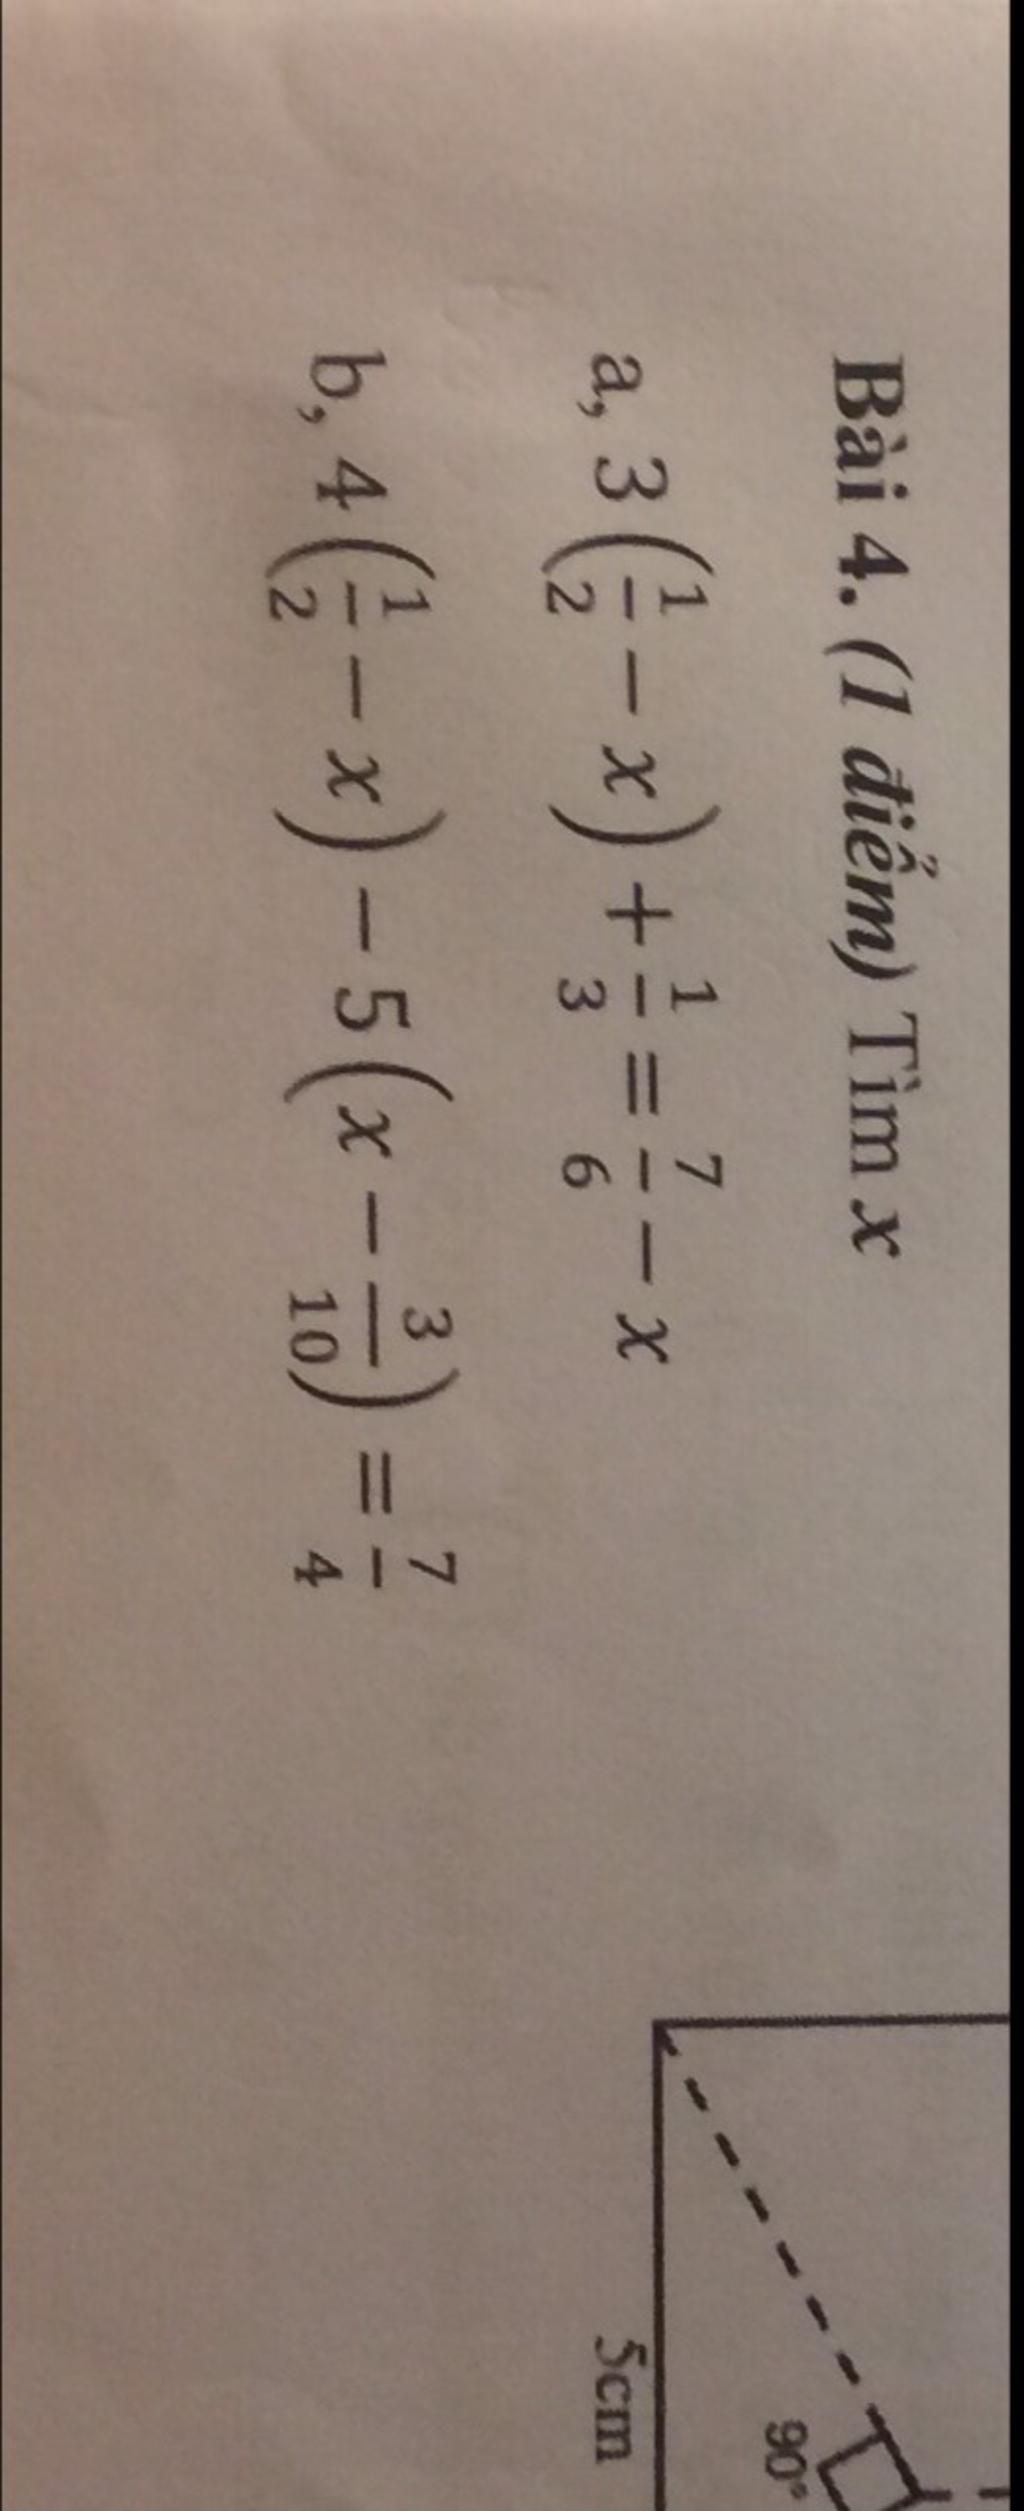 Bài 4. (1 điểm) Tìm x
a, 3(1/2 − x) + 1/3 = 7/6 − x
b, 4(1/2 − x) − 5(x − 3/10) = 7/4
5cm
90°